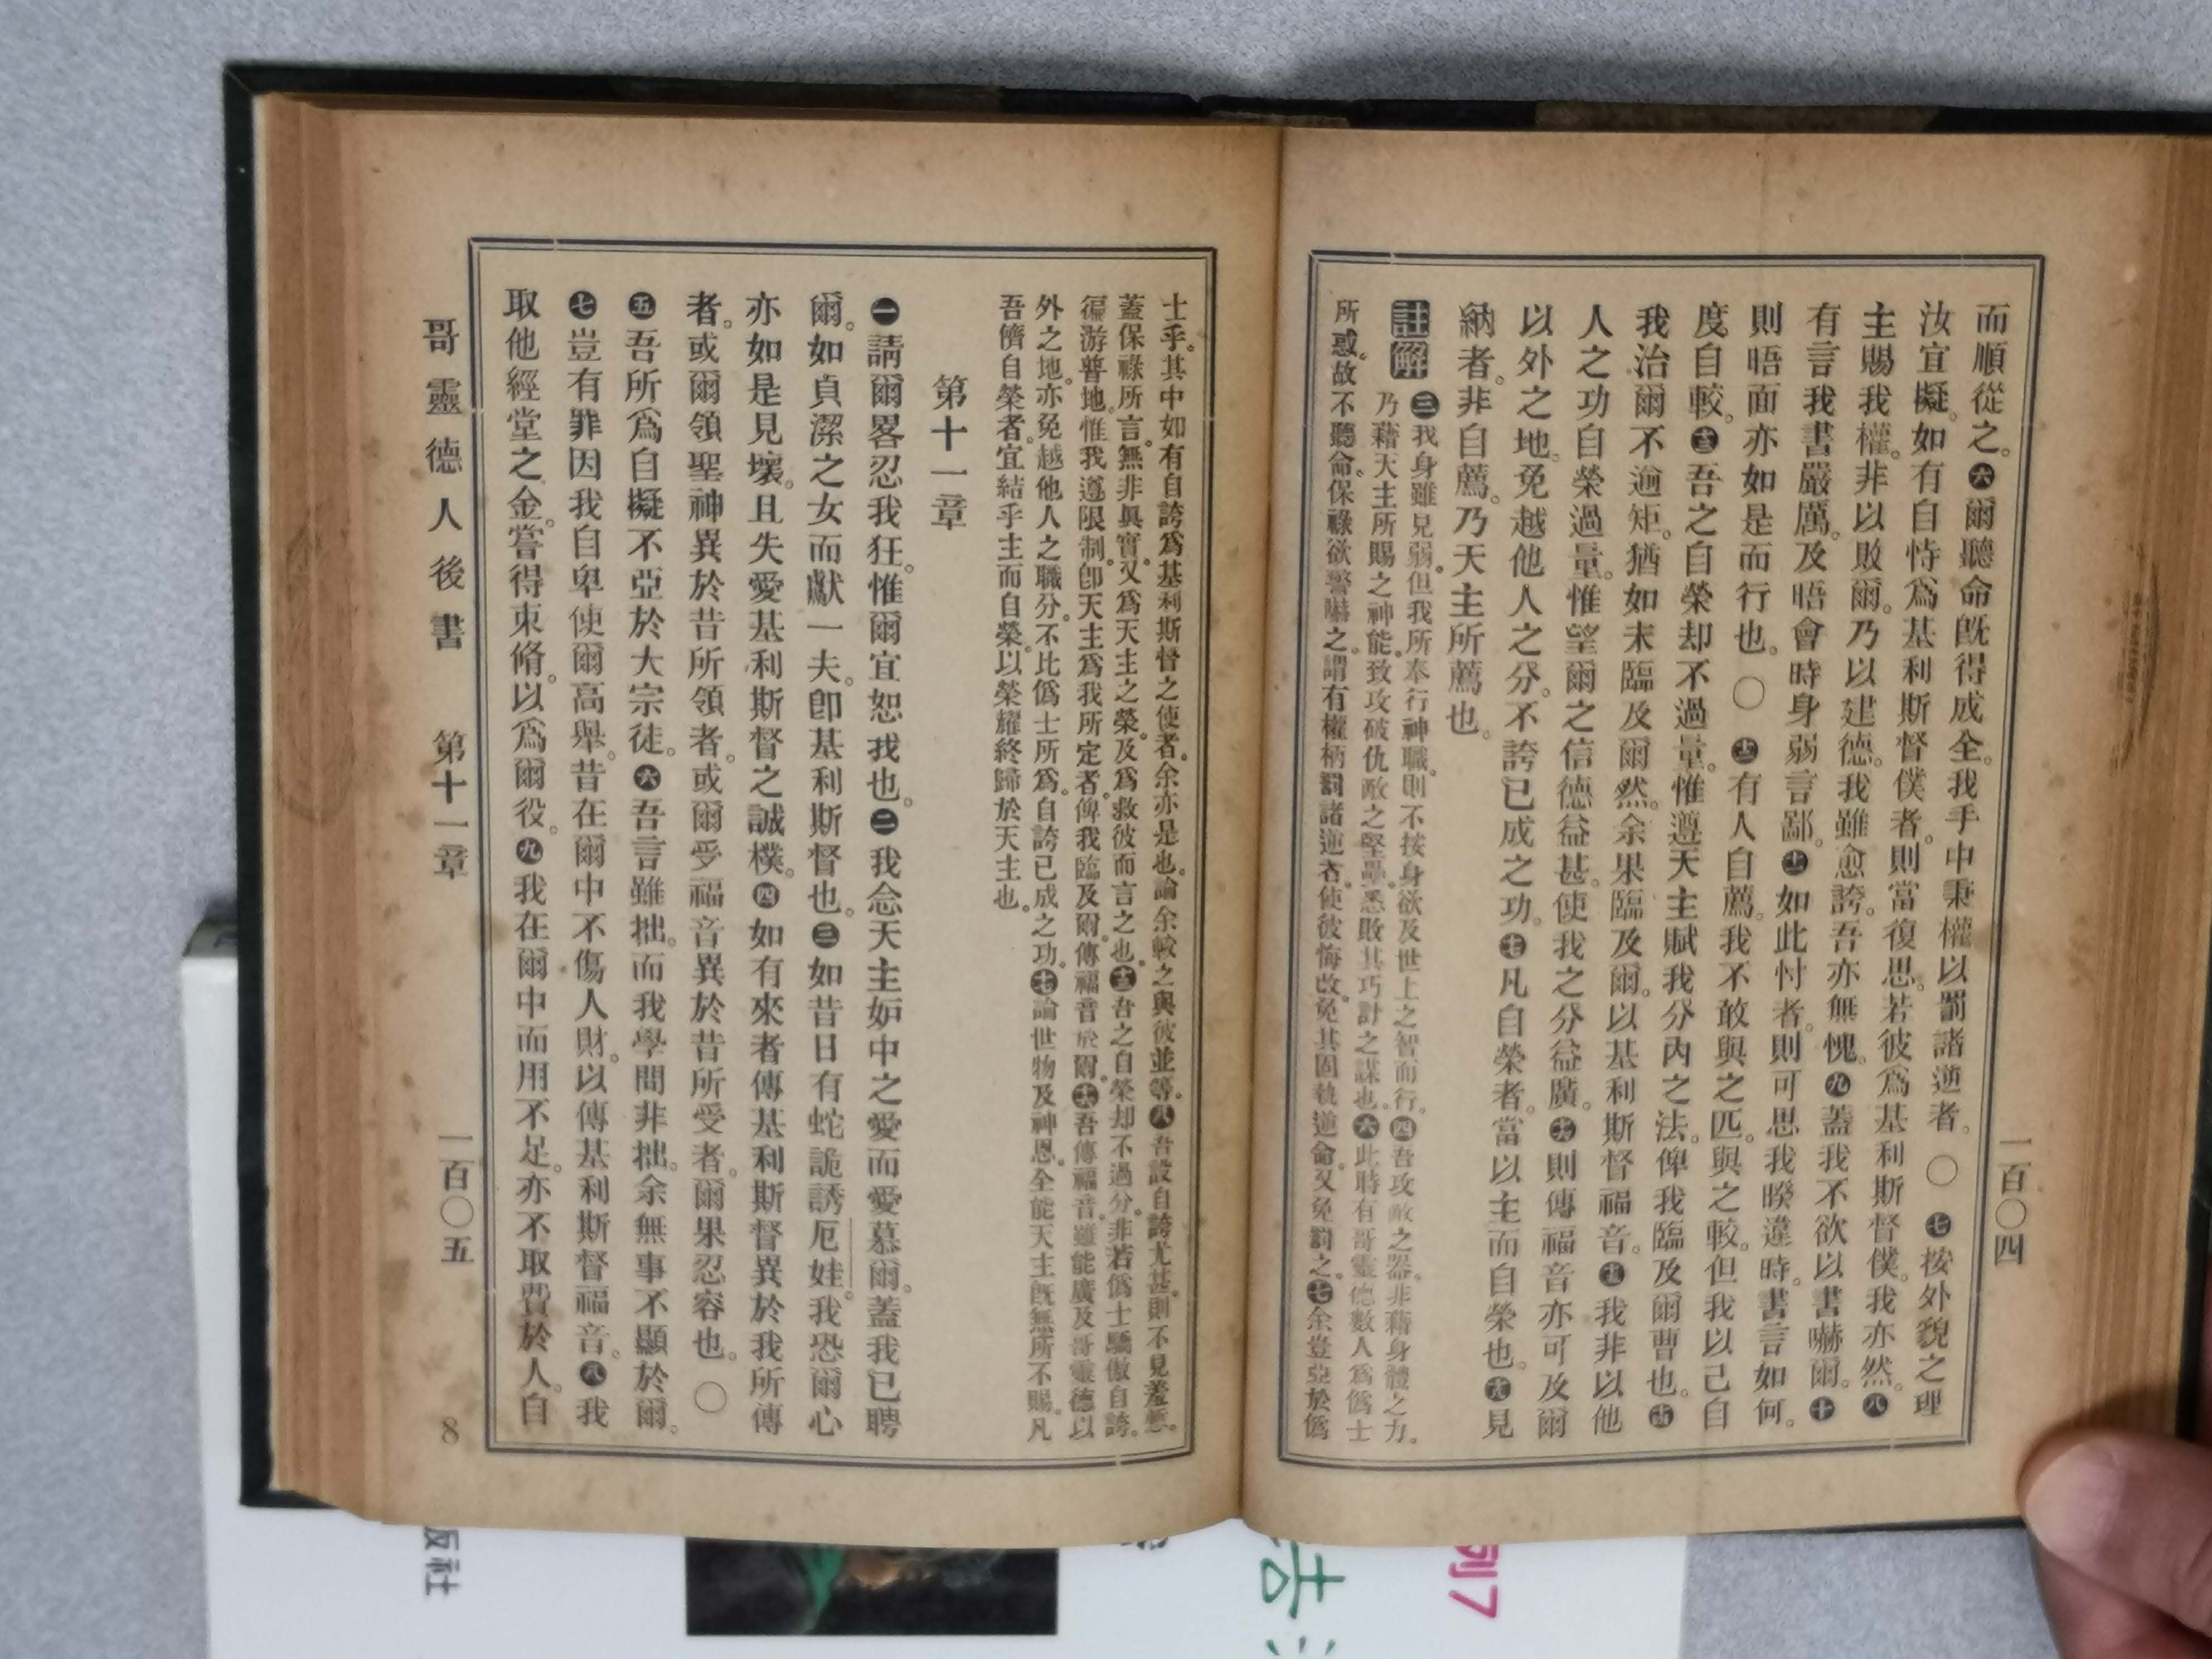 而順從之。六爾聽命旣得成全。我手中秉權以罰諸逆者。〇七按外貌之理
汝宜擬。如有自恃爲基利斯督僕者。則當復思。若彼爲基利斯督僕。我亦然。八
主賜我權。非以敗爾。乃以建德。我雖愈誇。吾亦無愧。九蓋我不欲以書嚇爾。十
有言我書嚴厲。及晤會時身弱言鄙。十一如此忖者。則可思我暌違時。書言如何。
則晤面亦如是而行也。〇十二有人自薦。我不敢與之匹。與之較。但我以己自
度自較。十三吾之自榮却不過量。惟遵天主賦我分內之法。俾我臨及爾曹也。十四
我治爾不逾矩。猶如未臨及爾然。余果臨及爾。以基利斯督福音。十五我非以他
人之功自榮過量。惟望爾之信德益甚。使我之分益廣。十六則傳福音亦可及爾
以外之地。免越他人之分。不誇已成之功。十七凡自榮者。當以主而自榮也。十八見
納者。非自薦。乃天主所薦也。
註解 三我身雖見弱。但我所奉行神職。則不按身欲及世上之智而行。四吾攻敵之器。非藉身體之力。
乃藉天主所賜之神能。致攻破仇敵之堅壘。悉敗其巧計之謀也。六此時有哥靈德數人爲僞士
所惑。故不聽命。保祿欲警嚇之。謂有權柄罰諸逆者。使彼悔改。免其固執逆命。又免罰之。七余豈亞於僞
一百〇四
士乎。其中如有自誇爲基利斯督之使者。余亦是也。論余較之與彼並等。八吾設自誇尤甚。則不見羞慙。
蓋保祿所言。無非眞實。又爲天主之榮。及爲救彼而言之也。十三吾之自榮却不過分。非若僞士驕傲自誇。
徧游普地。惟我遵限制。卽天主爲我所定者。俾我臨及爾。傳福音於爾。十六吾傳福音。雖能廣及哥靈德以
外之地。亦免越他人之職分。不比僞士所爲。自誇已成之功。十七論世物及神恩。全能天主旣無所不賜。凡
吾儕自榮者。宜結乎主而自榮。以榮耀終歸於天主也。
第十一章
一請爾畧忍我狂。惟爾宜恕我也。二我念天主妒中之愛而愛慕爾。蓋我已聘
爾。如貞潔之女而獻一夫。卽基利斯督也。三如昔日有蛇詭誘厄娃。我恐爾心
亦如是見壞。且失愛基利斯督之誠樸。四如有來者傳基利斯督異於我所傳
者。或爾領聖神異於昔所領者。或爾受福音異於昔所受者。爾果忍容也。〇
五吾所爲自擬不亞於大宗徒。六吾言雖拙。而我學問非拙。余無事不顯於爾。
七豈有罪因我自卑使爾高舉。昔在爾中不傷人財。以傳基利斯督福音。八我
取他經堂之金。嘗得束脩。以爲爾役。九我在爾中而用不足。亦不取費於人。自
哥靈德人後書 第十一章 一百〇五
8
版社
列7